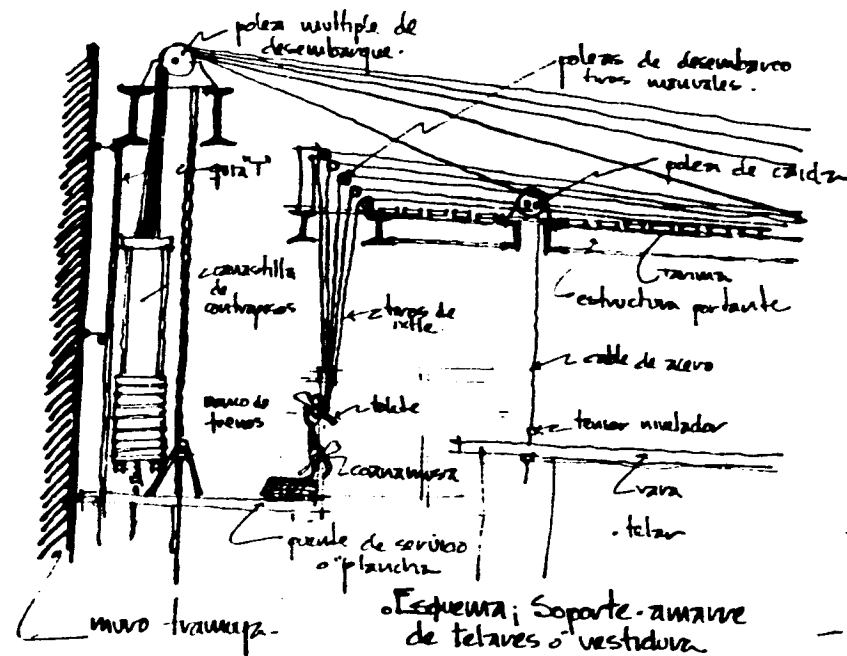 polea multiple de
desembarque.
poleas de desembarco
tiros manuales.
guia "T"
polea de caida
tarima
estructura portante
canastilla
de
contrapesos
tiros de
ixtle
cable de acero
marco de
frenos
tolete
tensor nivelador
cornamusa
vara
. telar
puente de servicio
o plancha
muro tramoya.
. Esquema; Soporte-amarre
de telares o vestidura